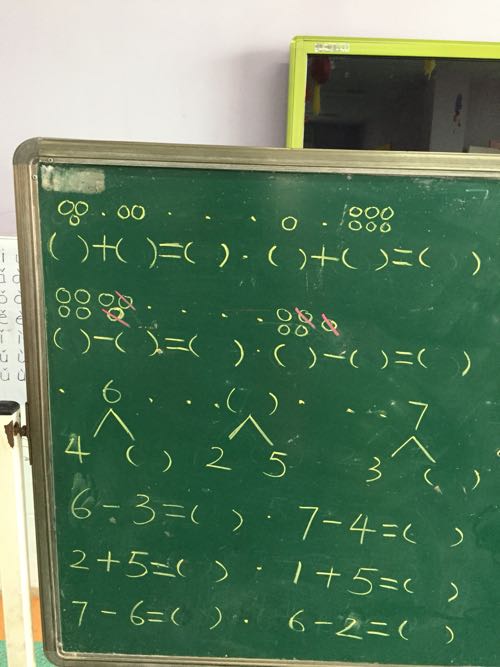 ( )+( )=( ) · ( )+( )=( )
( )-( )=( ) · ( )-( )=( )
6 ( ) 7
4 ( ) 2 5 3 ( )
6-3=( ) · 7-4=( )
2+5=( ) · 1+5=( )
7-6=( ) · 6-2=( )